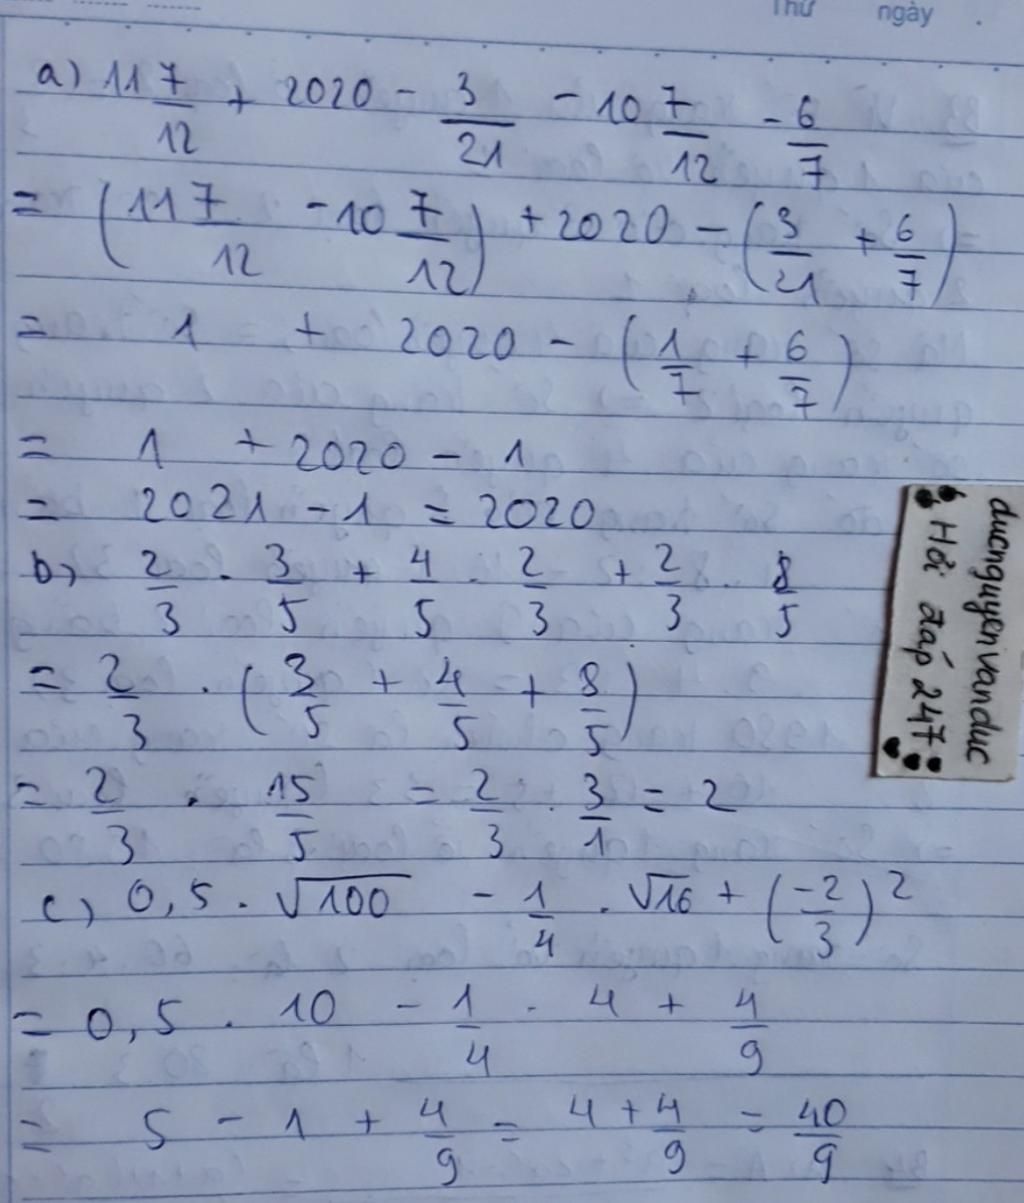 Thứ ngày .
a) 11 7/12 + 2020 - 3/21 - 10 7/12 - 6/7
= (11 7/12 - 10 7/12) + 2020 - (3/21 + 6/7)
= 1 + 2020 - (1/7 + 6/7)
= 1 + 2020 - 1
= 2021 - 1 = 2020
b) 2/3 . 3/5 + 4/5 . 2/3 + 2/3 . 8/5
= 2/3 . (3/5 + 4/5 + 8/5)
= 2/3 . 15/5 = 2/3 . 3/1 = 2
c) 0,5 . √100 - 1/4 . √16 + (-2/3)²
= 0,5 . 10 - 1/4 . 4 + 4/9
= 5 - 1 + 4/9 = 4 + 4/9 = 40/9
ducnguyenvanduc
Hỏi đáp 247